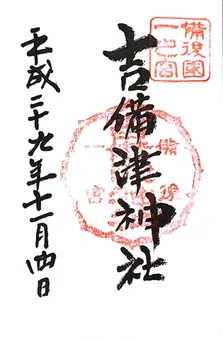 備後國
一之宮
吉備津神社
平成二十九年十一月四日